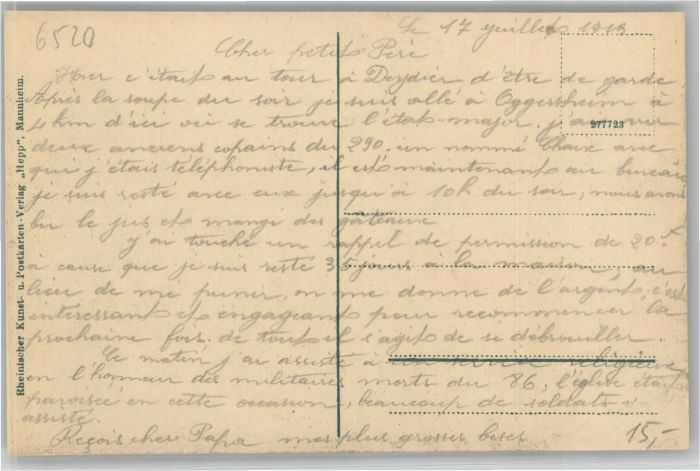 6520
Le 17 juillet 1919
Cher petit Père
Hier c'était au tour à Deydier d'être de garde
Après la soupe du soir je suis allé à Oggersheim à
4 km d'ici où se trouve l'état-major. j'ai vu
deux anciens copains du 290. un nommé Chaix avec
qui j'étais téléphoniste, il est maintenant au bureau
je suis resté avec eux jusqu'à 10h du soir, nous avons
bu le jus et mangé des gâteaux
j'ai touché un rappel de permission de 20.f
à cause que je suis resté 36 jours à la maison, au
lieu de me punir, on me donne de l'argent, c'est
interessant et engageant pour recommencer la
prochaine fois, de tout il s'agit de se débrouiller.
Ce matin j'ai assisté à un service religieux
en l'honneur des militaires morts du 86. l'église était
pavoisée en cette occasion, beaucoup de soldats y
assisté.
Reçois cher Papa mes plus grosses bises
15,-
277723
Rheinischer Kunst- u. Postkarten-Verlag „Hepp", Mannheim.